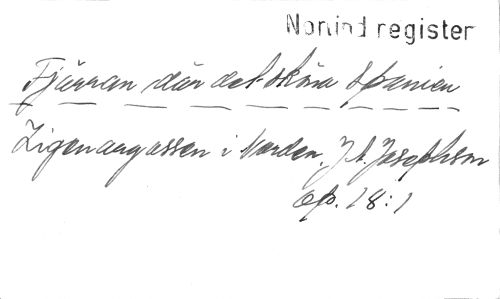 Nonind register
Fjärran där det sköna Spanien
Zigenargossen i Norden. J. A. Josephson
op. 18:1